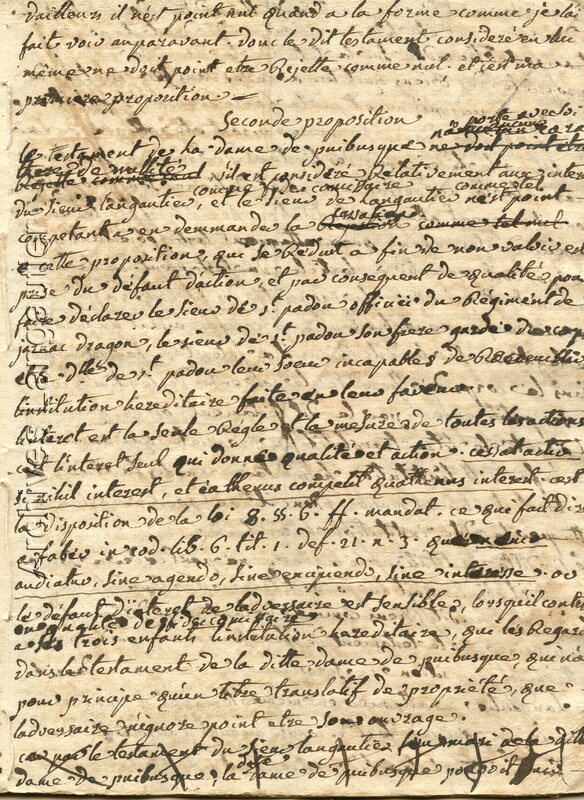 dailleurs il n'est point nul quand a la forme comme je lai
fait voir auparavant. donc le dit testament considere en lui
même ne doit point etre Rejetté comme nul. et c'est ma
premiere proposition
Seconde proposition
le testament de la dame de puibusque ne doit point etre
Rejetté comme nul s'il est considéré Relativement aux interets
du sieur langautier, et le sieur de langautier n'est point
competant a en demmander la cassation comme tel
cette proposition, qui se Reduit a fin de non valoir est
prise du défaut daction, et par consequent de qualité, pour
faire déclarer le sieur de st. padou officier du Régiment de
jarnac dragon, le sieur de st. padou son frere garde du corps
et la dlle. de st. padou leur soeur incapables de
linstitution hereditaire faite en leur faveur
linteret est la seule Régle et la mesure de toutes les actions
c'est l'interet seul qui donne qualité et action. cessat actio
si nihil interest, et eathenus competit quathenus interest. c'est
la disposition de la loi 8. §§ 6. ff. mandat. ce qui fait dire
a fabre in cod. lib. 6. tit. 1. def. 21. n. 3. que
audiatur, sine agendo, sine excipiendo, sine interesse. ou
le défaut d'interet de ladversaire est sensible, lorsqu'il conteste
a ses trois enfants linstitution hereditaire, qui les Regarde
dans le testament de la ditte dame de puibusque qui n'a
pour principe qu'un titre translatif de propriété, que
ladversaire n'ignore point etre son ouvrage.
car par le testament du sieur langautier son mari de la ditte
dame de puibusque, la dame de puibusque
Archives Larosalutier